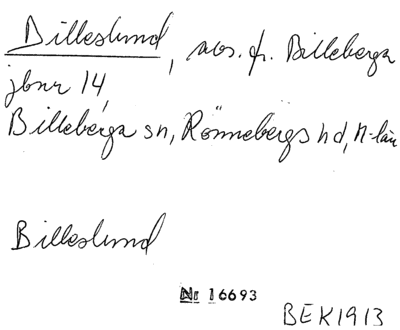 Billeslund, avs. fr. Billeberga
jbnr 14,
Billeberga sn, Rönnebergs hd, M-län
Billeslund
Nr 16693
BEK1913